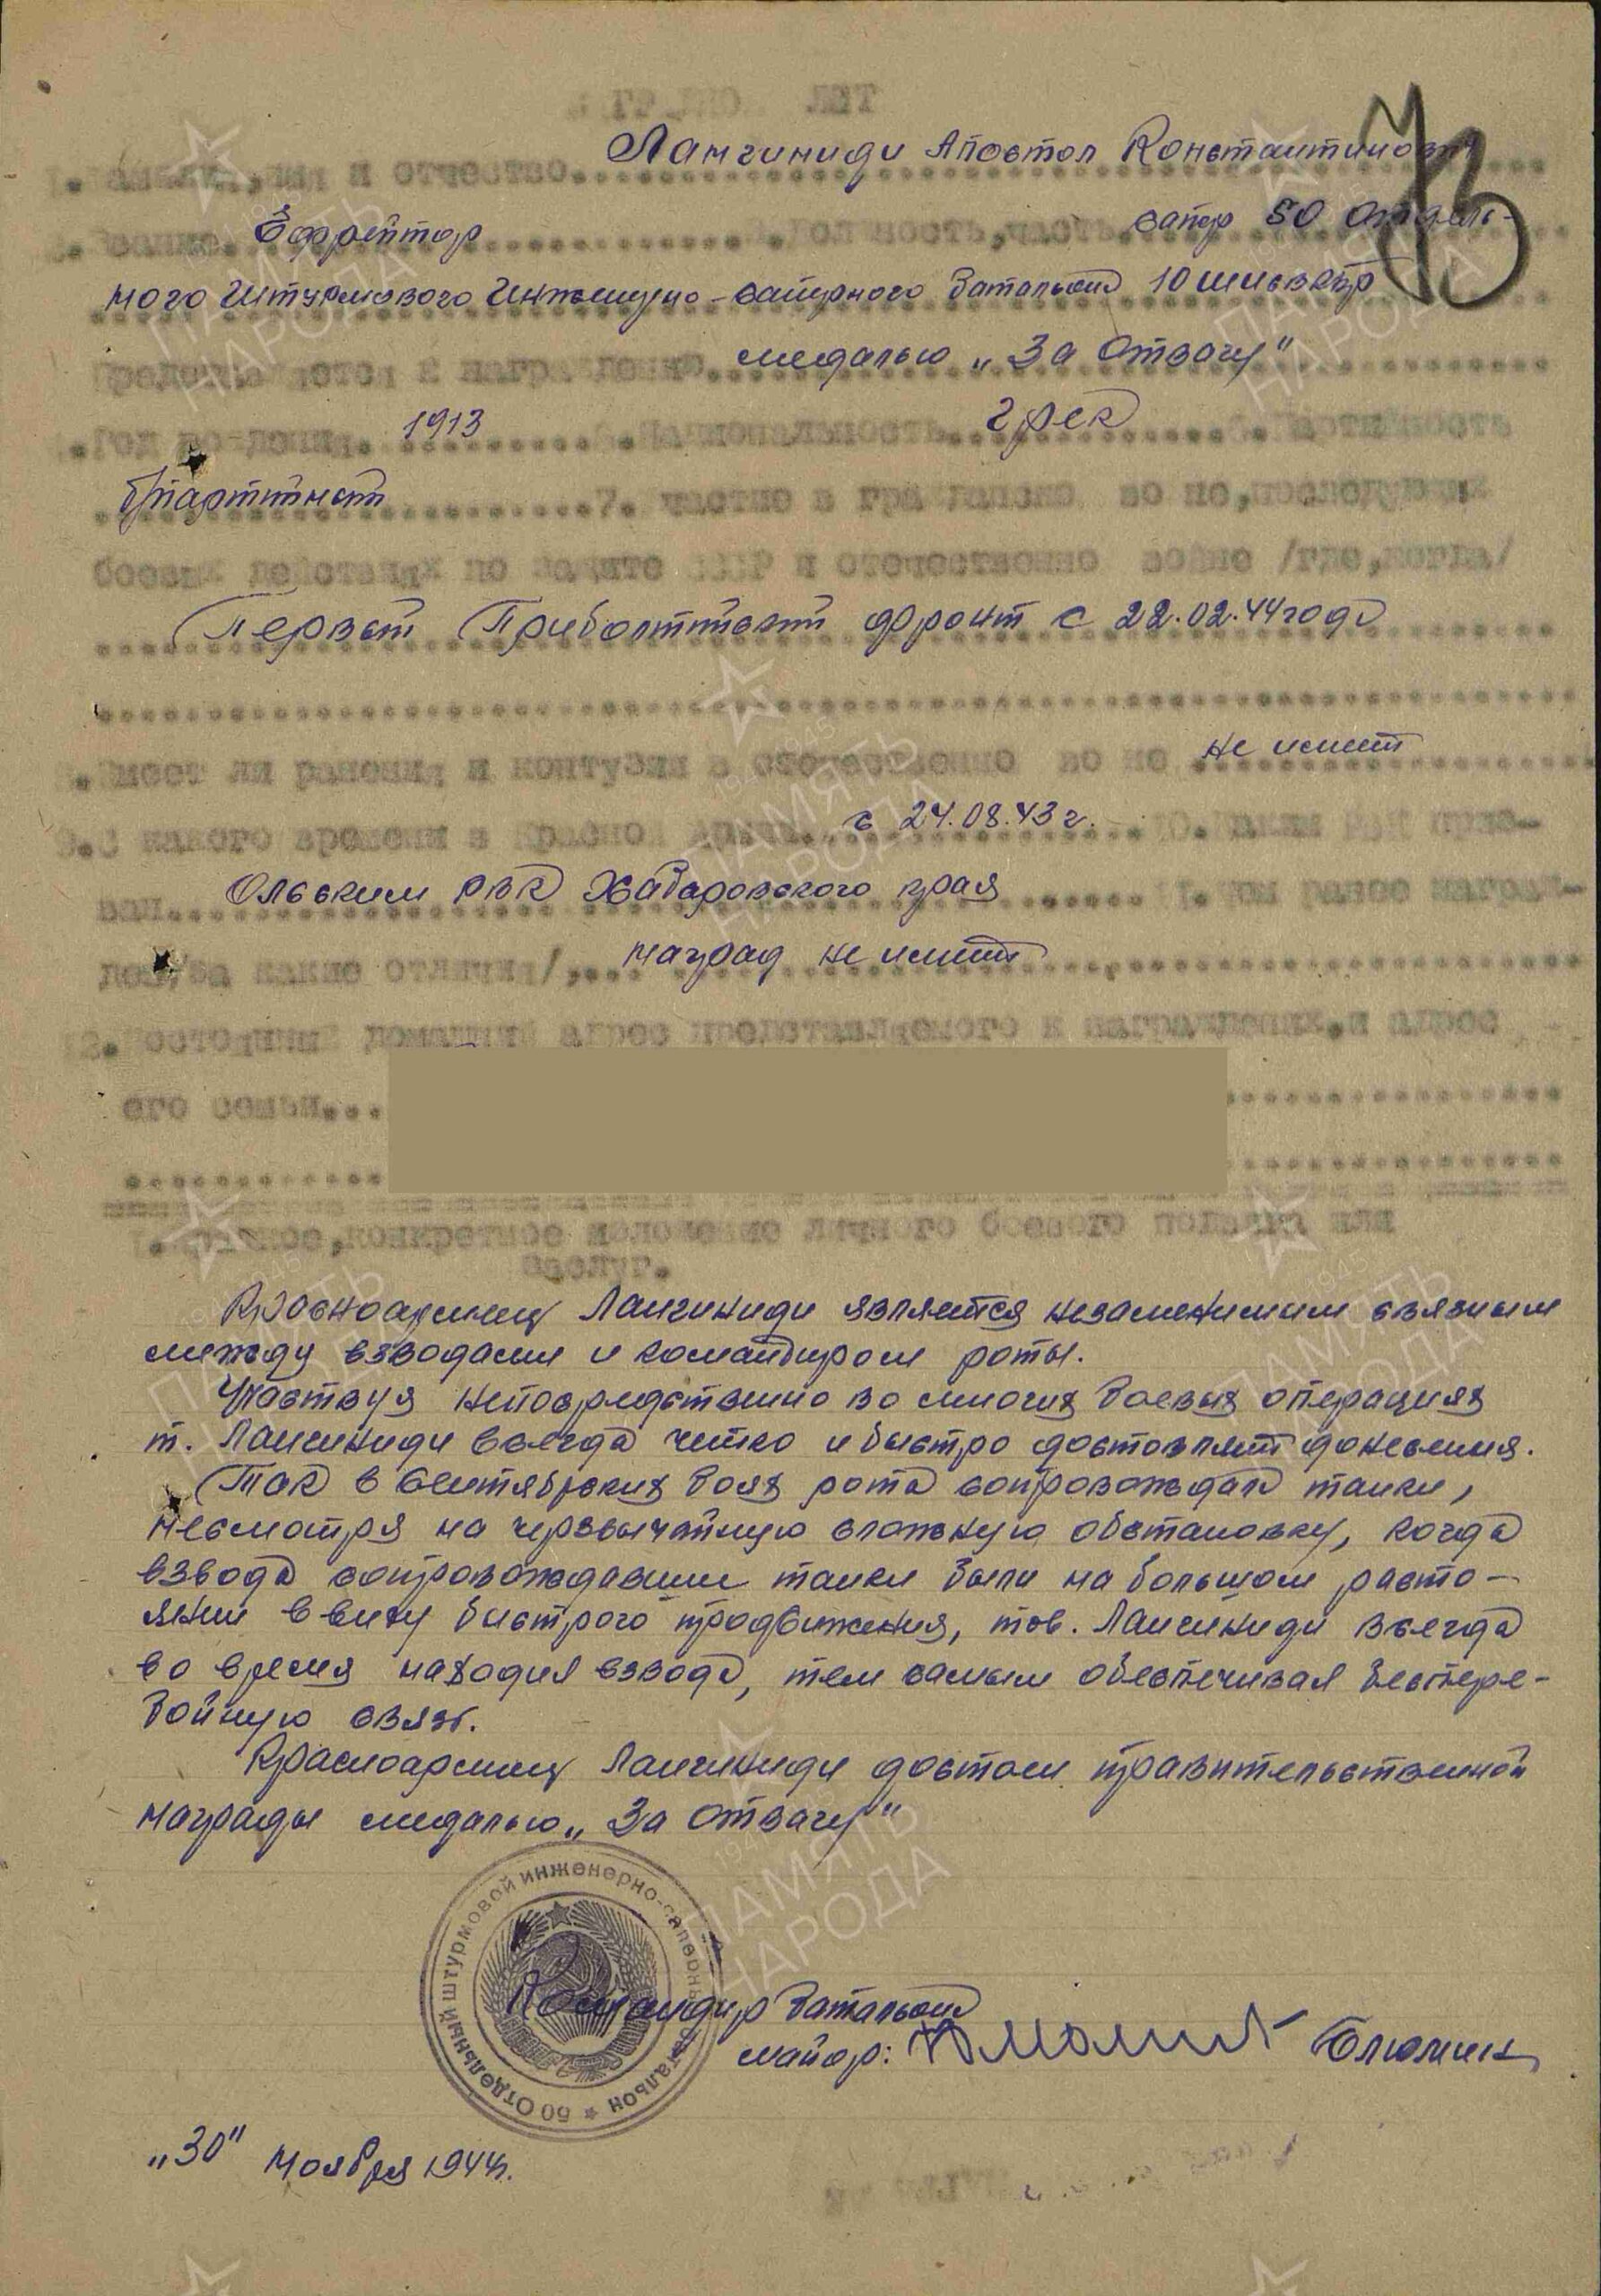 НАГРАДНОЙ ЛИСТ
13
1. Фамилия, имя и отчество Лангиниди Апостол Константинович
2. Звание Ефрейтор 3. Должность, часть сапер 50 Отдель-
ного Штурмового Инженерно-саперного батальона 10 шисбкр
Представляется к награждению медалью „За Отвагу"
4. Год рождения 1913 5. Национальность грек 6. Партийность
б/партийный 7. Участие в гражданской войне, последующих
боевых действиях по защите СССР и отечественной войне /где, когда/
Первый Прибалтийский фронт с 22.02.44 года
8. Имеет ли ранения и контузии в отечественной войне не имеет
9. С какого времени в Красной Армии с 24.08.43 г. 10. Каким РВК приз-
ван Ольским РВК Хабаровского края 11. Чем ранее награж-
ден /за какие отличия/, наград не имеет
12. Постоянный домашний адрес представляемого к награждению, и адрес
его семьи
I. Краткое, конкретное изложение личного боевого подвига или
заслуг.
Красноармеец Лангиниди является незаменимым связным
между взводами и командиром роты.
Участвуя непосредственно во многих боевых операциях
т. Лангиниди всегда четко и быстро доставляет донесения.
Так в сентябрьских боях рота сопровождала танки,
несмотря на чрезвычайную сложную обстановку, когда
взвода сопровождавшие танки были на большом растo-
янии ввиду быстрого продвижения, тов. Лангиниди всегда
во время находил взвода, тем самым обеспечивая беспере-
бойную связь.
Красноармеец Лангиниди достоин правительственной
награды медалью „За Отвагу"
50 Отдельный штурмовой инженерно-саперный батальон
Командир батальона
майор: Блюмин
„30" ноября 1944 г.
ПАМЯТЬ НАРОДА
1941 1945